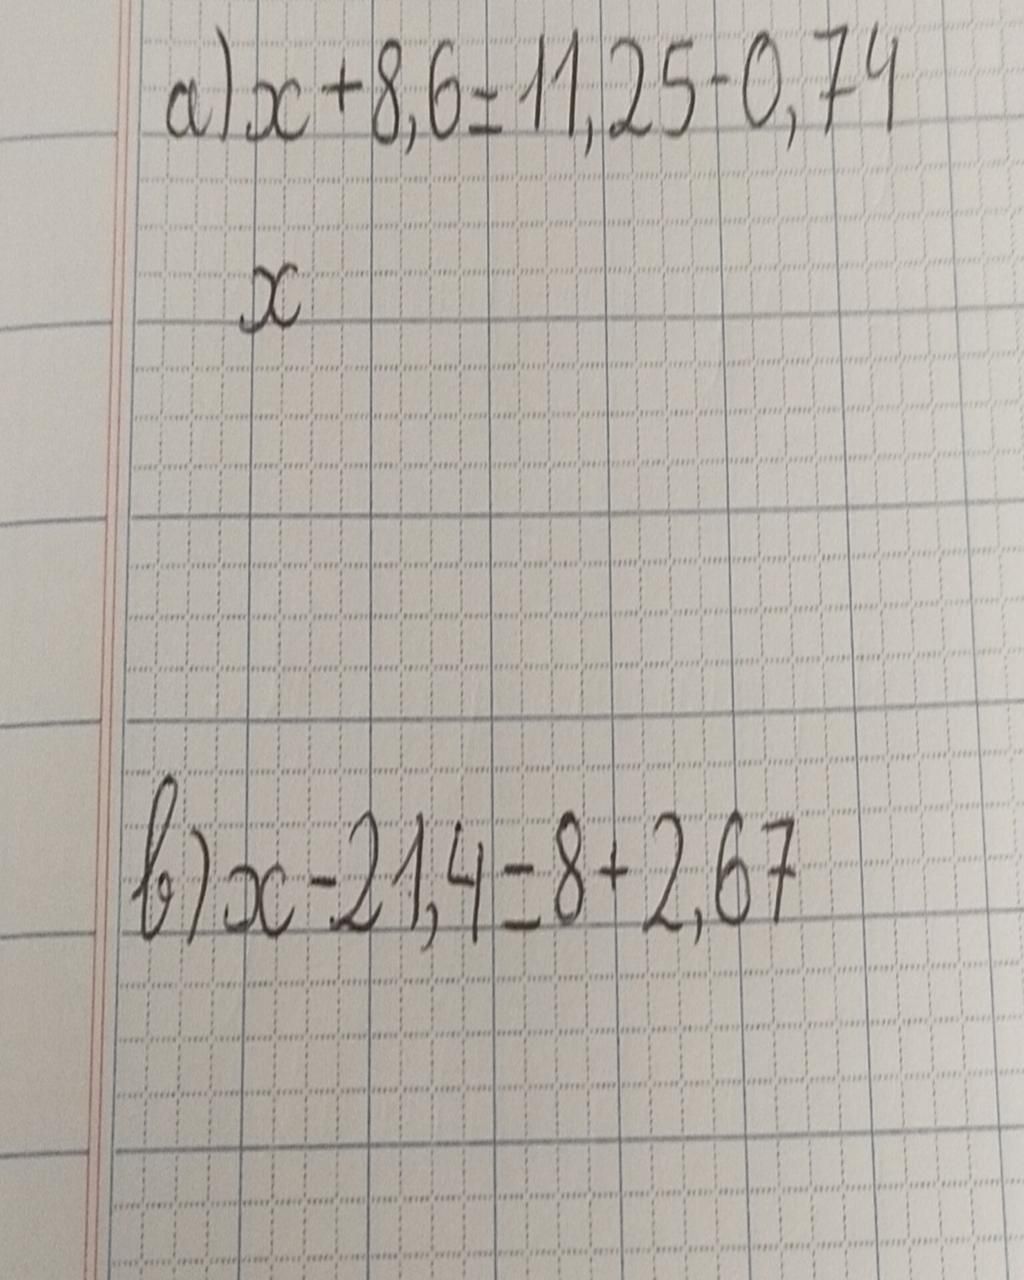 a) x + 8,6 = 11,25 - 0,74
x
b) x - 21,4 = 8 + 2,67